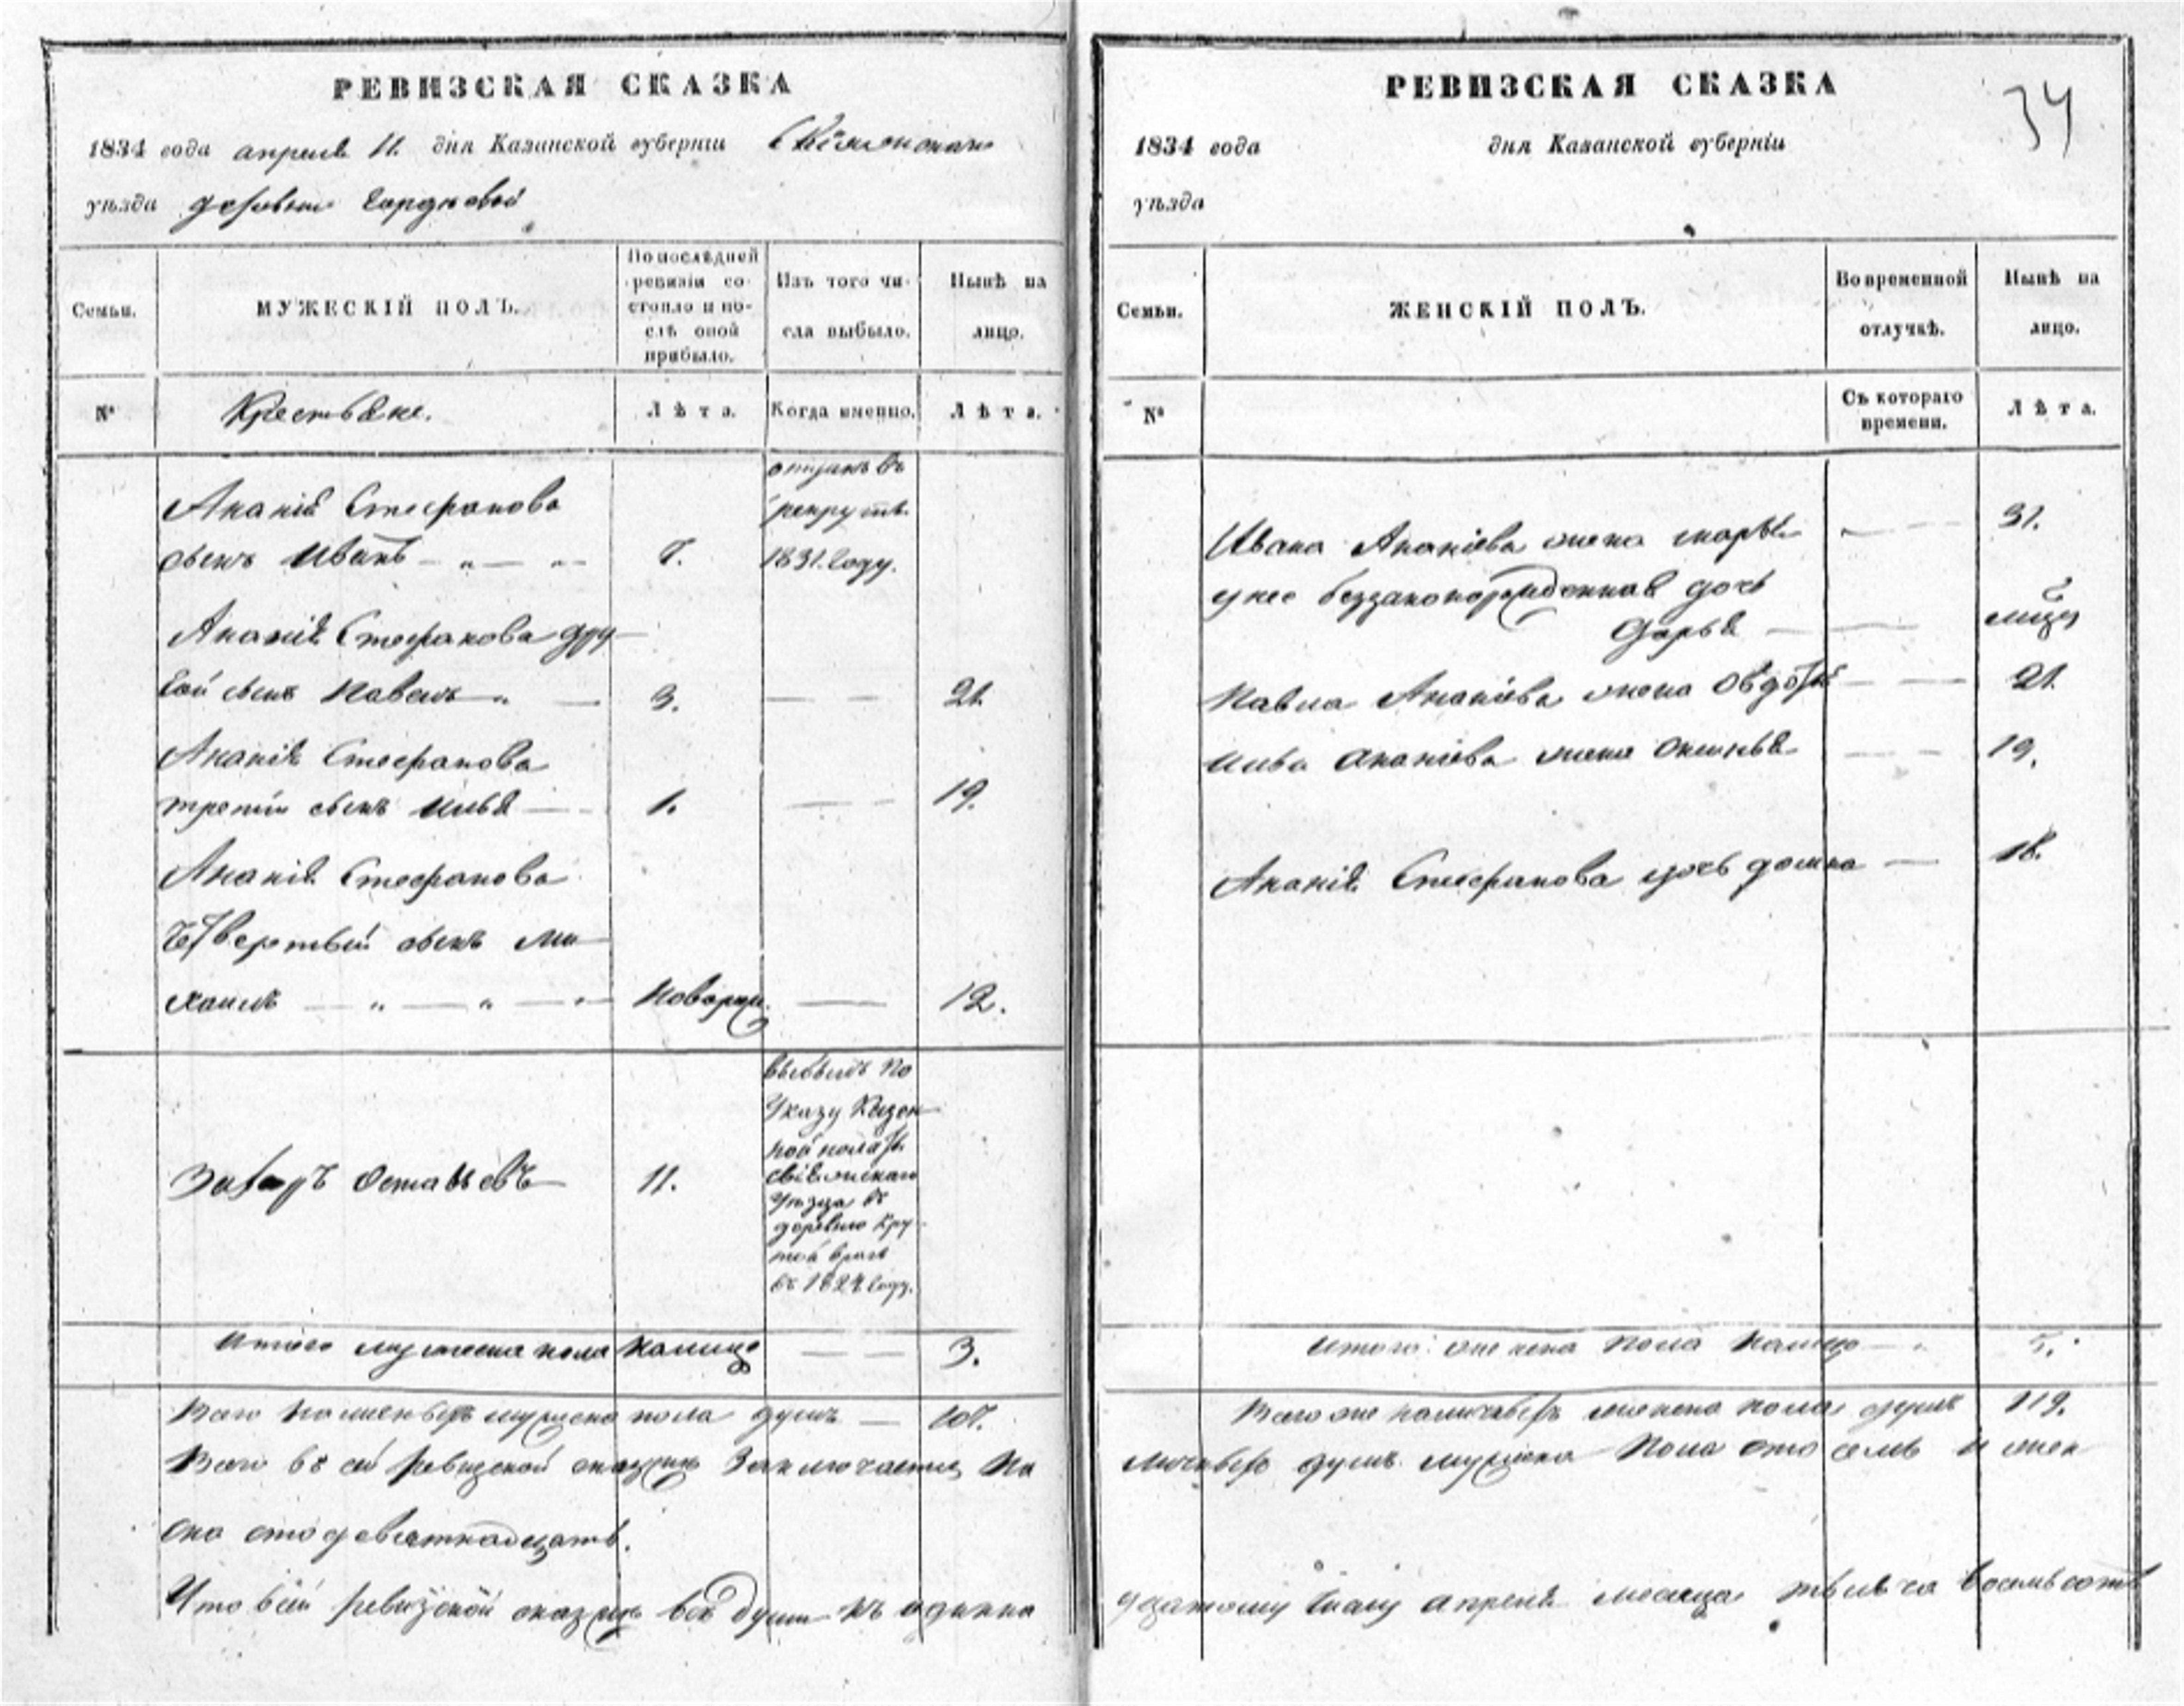 РЕВИЗСКАЯ СКАЗКА
1834 года апреля 11. дня Казанской губерніи
уѣзда деревни
Семьи.
МУЖЕСКІЙ ПОЛЪ.
По послѣдней
ревизіи со-
стояло и по-
слѣ оной
прибыло.
Изъ того чи-
сла выбыло.
Нынѣ на
лицо.
№
Крестьяне.
Лѣта.
Когда именно.
Лѣта.
Ананія Стефанова
сынъ Иванъ
7.
отданъ въ
рекруты
1831. году.
Ананія Стефанова дру
гой сынъ Павелъ
3.
21.
Ананія Стефанова
третій сынъ Илья
1.
19.
Ананія Стефанова
четвертый сынъ Ми
хаилъ
Новорж.
12.
Захаръ
11.
выбылъ по
Указу Казен
ной полаты
свіяжскаго
Уѣзда въ
деревню Кру
той враг
въ 1824 году.
Итого мужеска пола налицо
3.
Всего мужеска пола душъ
107.
Всего въ сей ревизской сказки Заключается На
ска сто девятнадцать.
Что всей ревизской сказки всѣ души къ одинна
РЕВИЗСКАЯ СКАЗКА
34
1834 года дня Казанской губерніи
уѣзда
Семьи.
ЖЕНСКІЙ ПОЛЪ.
Во временной
отлучкѣ.
Нынѣ на
лицо.
№
Съ котораго
времени.
Лѣта.
Ивана Ананіева жена марья
31.
у нее беззаконорожденная дочь
Дарья
Павла Ананіева жена Овдотья
21.
Ильи Ананіева жена Оксинья
19.
Ананія Стефанова дочь домна
18.
Итого женска пола налицо
5.
Всего женска пола душъ
119.
душъ мужеска Пола сто семь и жен
дцатому числу апреля месяца тысяча восемьсотъ